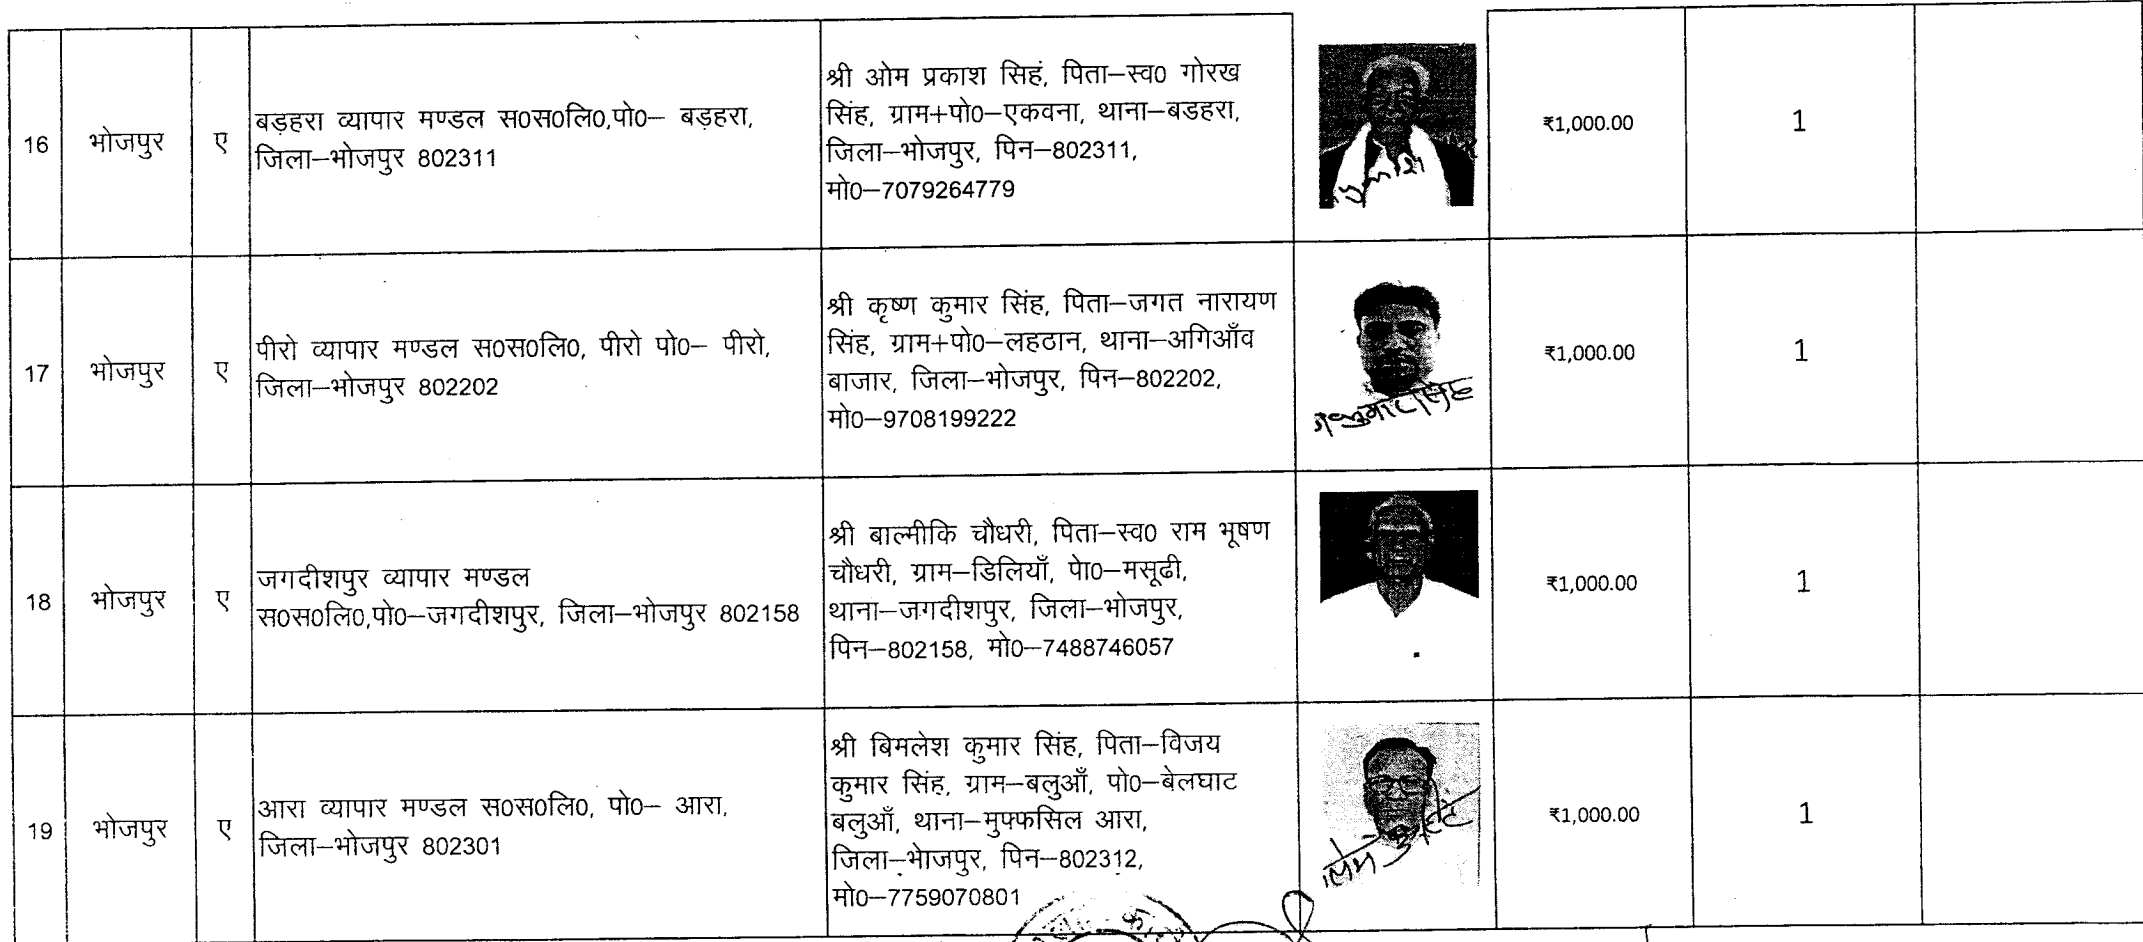 16
भोजपुर
ए
बड़हरा व्यापार मण्डल स0स0लि0,पो0– बड़हरा,
जिला–भोजपुर 802311
श्री ओम प्रकाश सिहं, पिता–स्व0 गोरख
सिंह, ग्राम+पो0–एकवना, थाना–बडहरा,
जिला–भोजपुर, पिन–802311,
मो0–7079264779
₹1,000.00
1
17
भोजपुर
ए
पीरो व्यापार मण्डल स0स0लि0, पीरो पो0– पीरो,
जिला–भोजपुर 802202
श्री कृष्ण कुमार सिंह, पिता–जगत नारायण
सिंह, ग्राम+पो0–लहठान, थाना–अगिआँव
बाजार, जिला–भोजपुर, पिन–802202,
मो0–9708199222
कुमार सिंह
₹1,000.00
1
18
भोजपुर
ए
जगदीशपुर व्यापार मण्डल
स0स0लि0,पो0–जगदीशपुर, जिला–भोजपुर 802158
श्री बाल्मीकि चौधरी, पिता–स्व0 राम भूषण
चौधरी, ग्राम–डिलियाँ, पेा0–मसूढी,
थाना–जगदीशपुर, जिला–भोजपुर,
पिन–802158, मो0–7488746057
₹1,000.00
1
19
भोजपुर
ए
आरा व्यापार मण्डल स0स0लि0, पो0– आरा,
जिला–भोजपुर 802301
श्री बिमलेश कुमार सिंह, पिता–विजय
कुमार सिंह, ग्राम–बलुआँ, पो0–बेलघाट
बलुआँ, थाना–मुफ्फसिल आरा,
जिला–भेाजपुर, पिन–802312,
मो0–7759070801
₹1,000.00
1